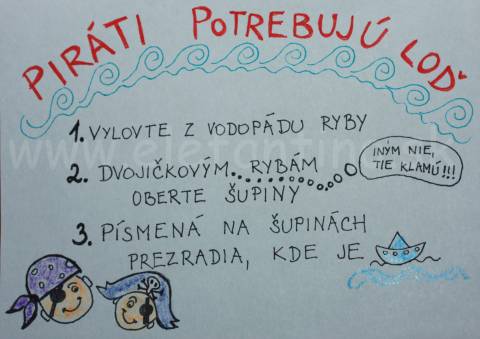 PIRÁTI POTREBUJÚ LOĎ
1. VYLOVTE Z VODOPÁDU RYBY
2. DVOJIČKOVÝM RYBÁM
OBERTE ŠUPINY
INÝM NIE,
TIE KLAMÚ!!!
3. PÍSMENÁ NA ŠUPINÁCH
PREZRADIA, KDE JE